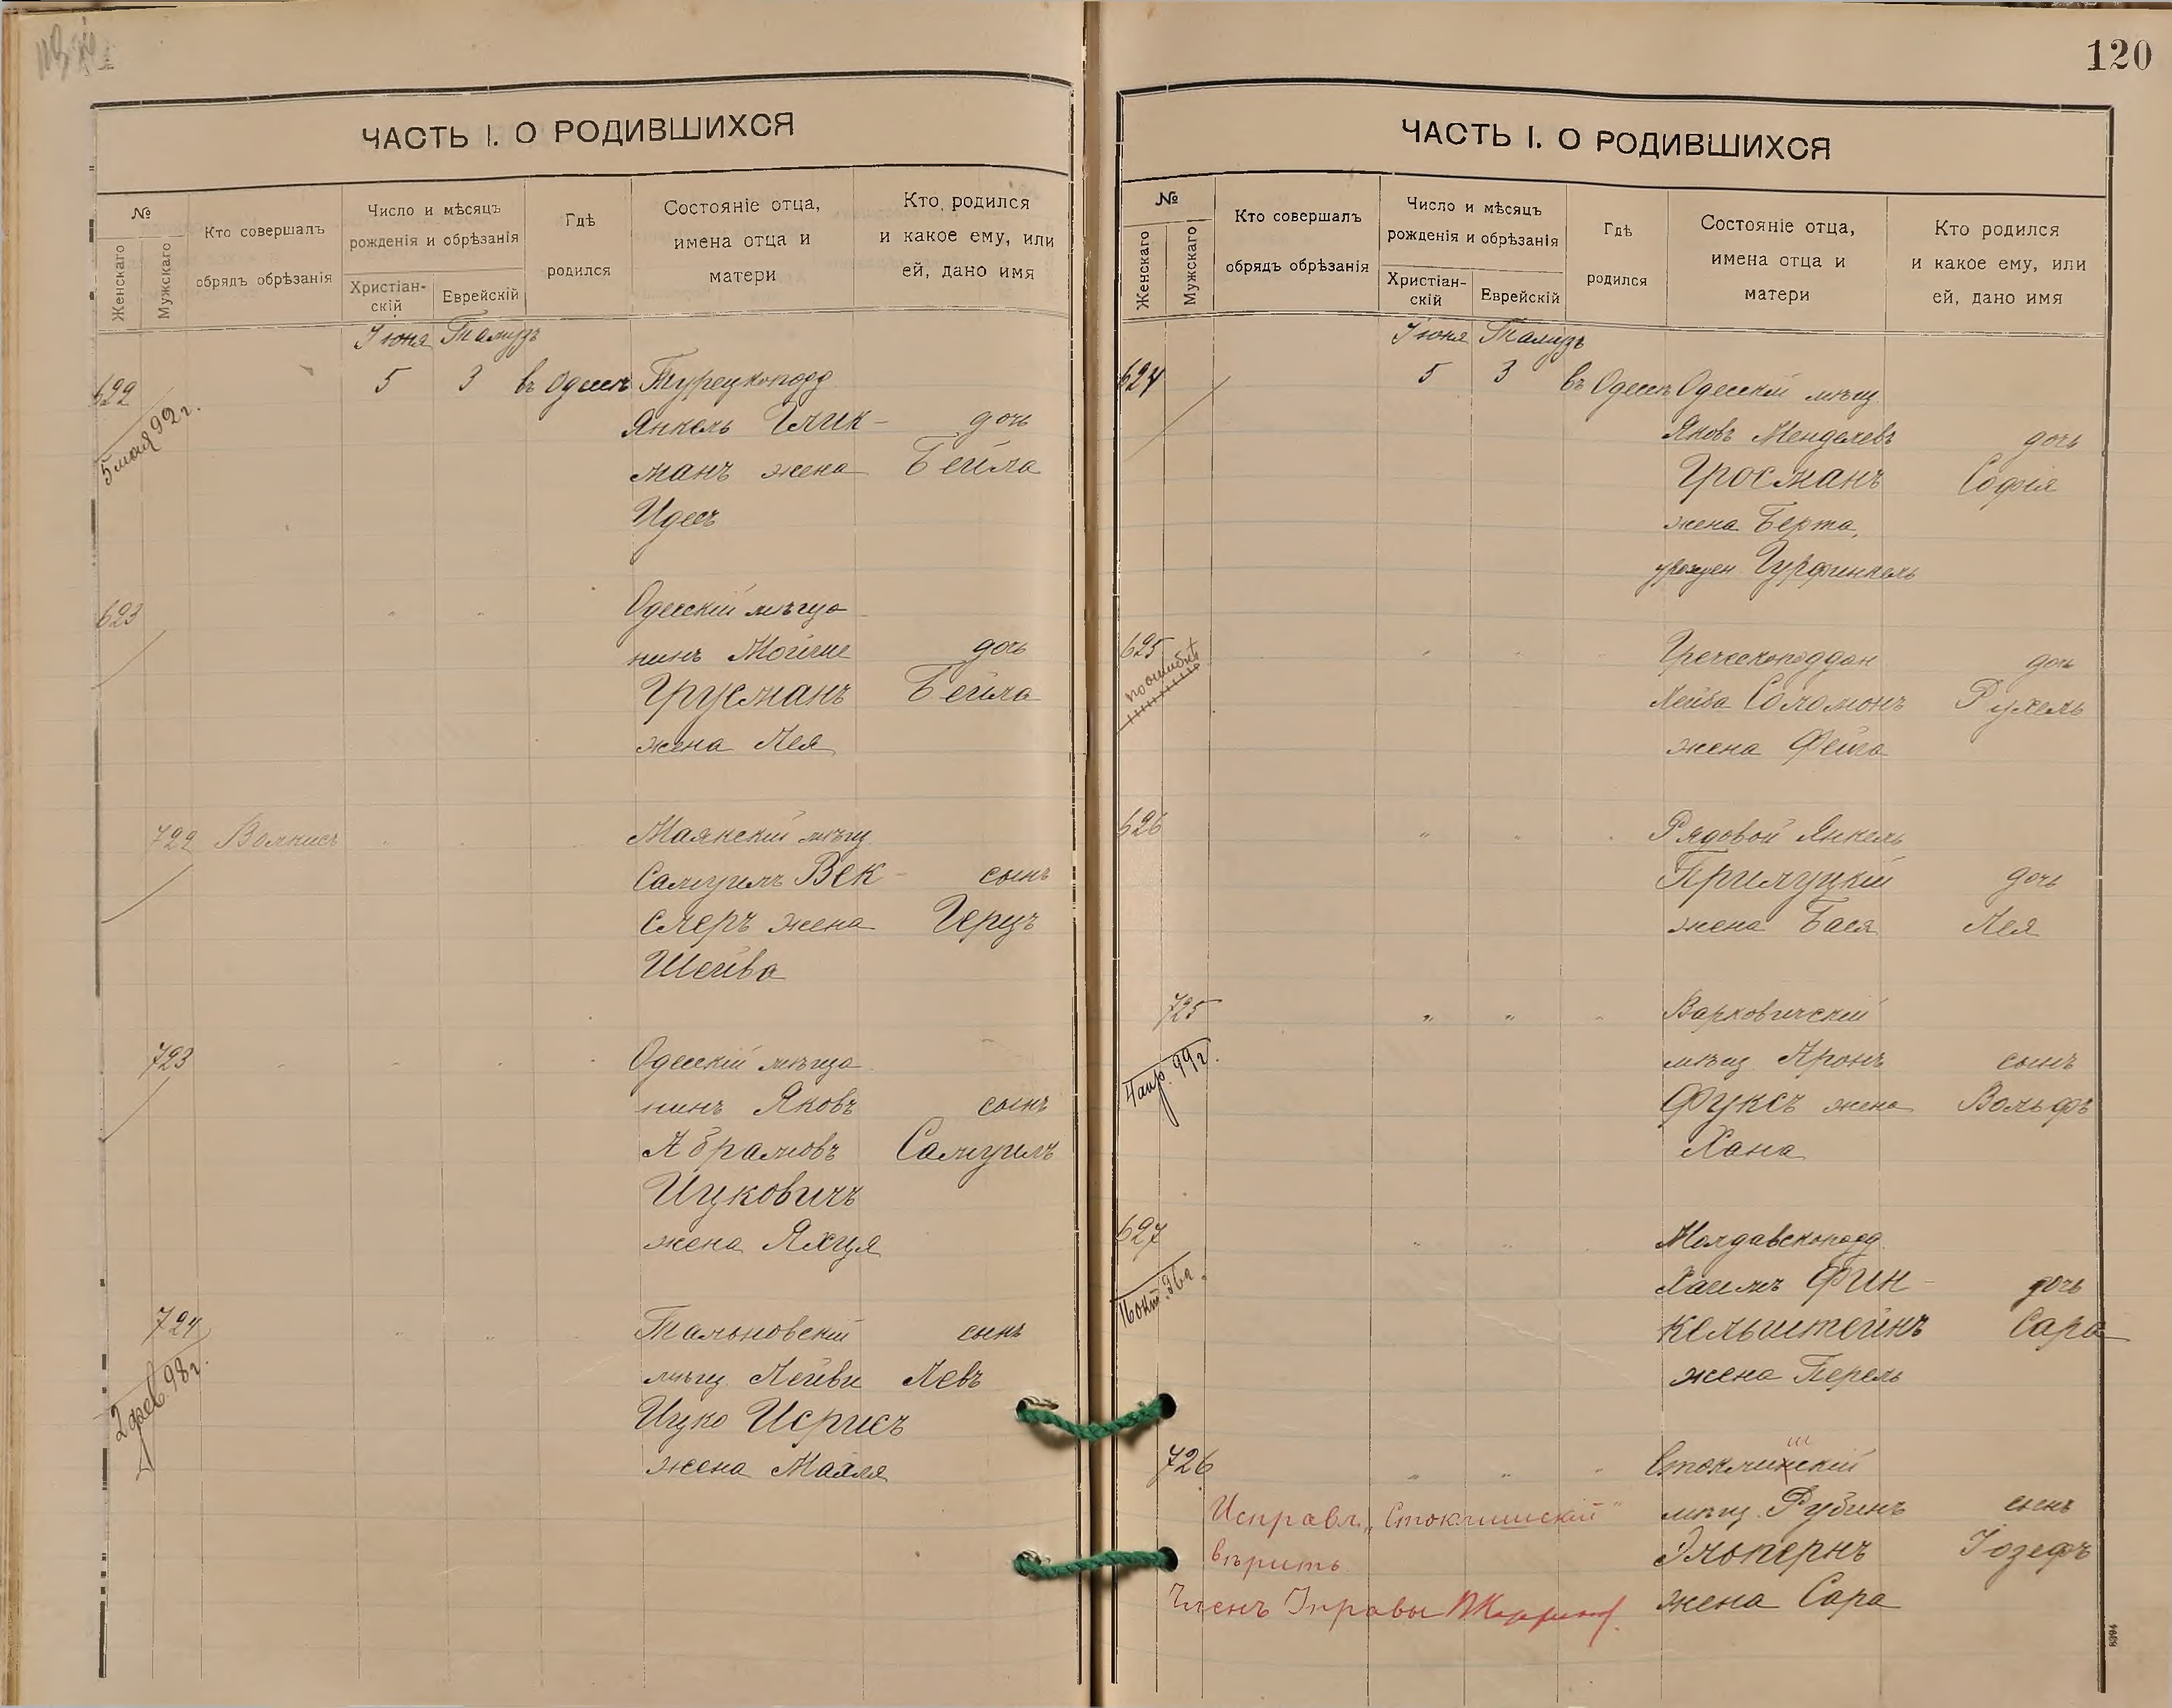 ЧАСТЬ I. О РОДИВШИХСЯ
№
Женскаго
Мужскаго
Кто совершалъ
обрядъ обрѣзанія
Число и мѣсяцъ
рожденія и обрѣзанія
Христіан-
скій
Еврейскій
Гдѣ
родился
Состояніе отца,
имена отца и
матери
Кто родился
и какое ему, или
ей, дано имя
Іюня Тамузъ
622 5 3 въ Одессѣ Турецкопод
5 мая 92 г.
Янкель Глик- дочь
манъ жена Бейла
Идесъ
623 " " Одесскій мѣща
нинъ Мойше дочь
Грусманъ Бейла
жена Лея
722 " " Маякскій мѣщ.
Самуилъ Век- сынъ
слеръ жена Герцъ
Шейва
723 " " " Одесскій мѣща
нинъ Яковъ сынъ
Абрамовъ Самуилъ
Ицковичъ
жена Яхця
724 " " Тальновскій сынъ
2 фев. 98 г.
мѣщ. Лейви Левъ
Ицко Исрисъ
жена Махля
120
ЧАСТЬ I. О РОДИВШИХСЯ
№
Женскаго
Мужскаго
Кто совершалъ
обрядъ обрѣзанія
Число и мѣсяцъ
рожденія и обрѣзанія
Христіан-
скій
Еврейскій
Гдѣ
родился
Состояніе отца,
имена отца и
матери
Кто родился
и какое ему, или
ей, дано имя
Іюня Тамузъ
624 5 3 въ Одессѣ Одесскій мѣщ.
Яковъ Менделевъ дочь
Гросманъ Софія
жена Берта,
урожден Гурфинкель
625 " " Греческоподдан дочь
по ошибкѣ
Лейба Соломонъ Рухель
жена Фейга
626 " " " Рядовой Янкель
Прилуцкій дочь
жена Бася Лея
725 " " " Варковичскій
4 апр. 99 г.
мѣщ. Аронъ сынъ
Фуксъ жена Вольфъ
Хана
627 " " Молдавскопод.
16 окт.
Хаимъ Фин- дочь
кельштейнъ Сара
жена Перель
ш
726 " " " Стоклинскій
Исправл. „Стоклишскій" мѣщ. Рубинъ сынъ
вѣрить Эльпернъ Іозефъ
Членъ Управы жена Сара
8394